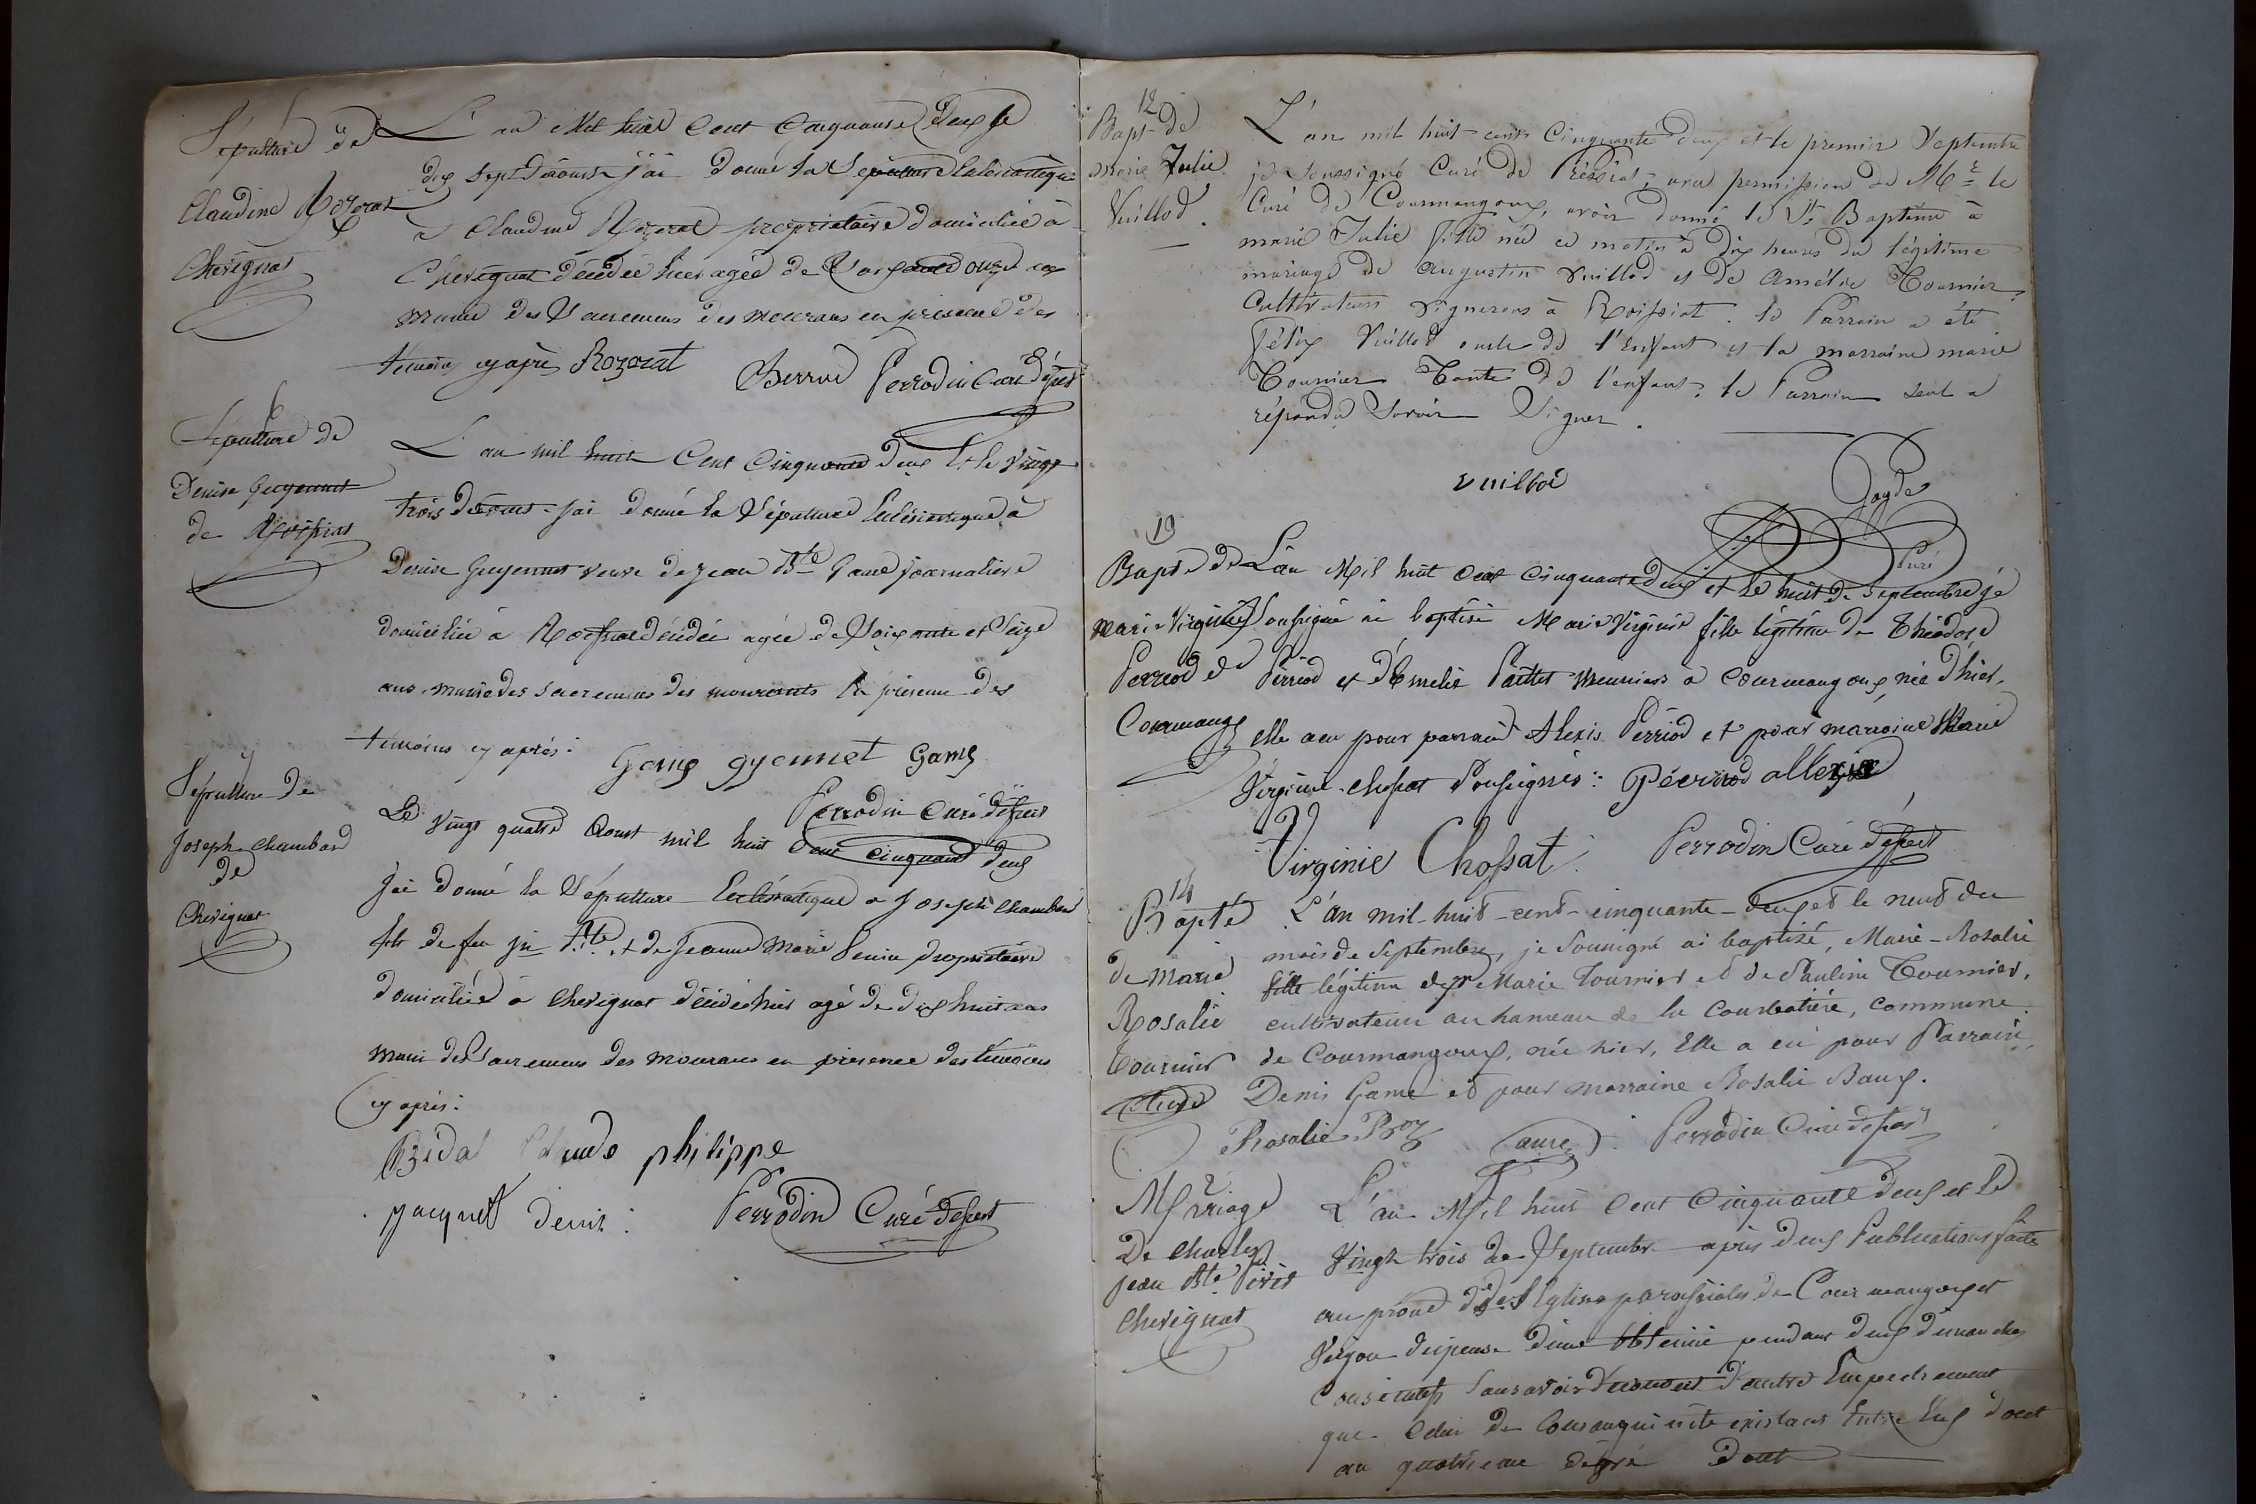 Sépulture de
Claudine Rozerat
Chevignat
L'an Mil huit Cent Cinquante deux le
dix Sept d'aoust j'ai donné la Sépulture Eclésiastique
à Claudine Rozerat propriétaire domiciliée à
Chevignat décédée hier agée de Soixante onze ans
munie des Sacremens des mourans en présence des
témoins cy après Rozerat Perrodin Curé
6
Sépulture de
Denise Guyennet
de Roissiat
L'an mil huit Cent Cinquante deux Et le Vingt
trois daoust jai donné la Sépulture Eclésiastique à
Denise Guyennet veuve de Jean Bte Game journalière
domiciliée à Roissiat décédée agée de Soixante et Seize
ans, munie des Sacremens des mourants En présence des
témoins cy après : Game gyennet Game
Perrodin Curé
7
Sépulture de
Joseph Chambard
de
Chevignat
Le Vingt quatre Aoust mil huit Cent cinquante deux
J'ai donné la Sépulture Eclésiastique a Joseph Chambard
fils de feu jn Bte et de Jeanne Marie propriétaire
domicilié à Chevignat décédé hier agé de dix huit ans
muni des Sacremens des mourans en présence des témoins
cy après :
Bidal Claude philippe
jacquet denis : Perrodin Curé
12
Bapt de
marie Julie
Vuillod.
L'an mil huit cent cinquante deux et le premier Septembre
je Soussigné Curé de Pressiat, avec permission de Mr le
Curé de Courmangoux, avoir donné le St Baptême à
marie Julie fille née ce matin à dix heures du légitime
mariage de augustin Vuillod et de Amélie Tournier
Cultivateurs Vignerons à Roissiat. le Parrain a été
félix Vuillod oncle de l'Enfant et la marraine marie
Tournier Tante de l'enfant, le Parrain seul a
répondu Savoir Signer.
vuillod
Curé
13
Bapt de
Marie Virginie
Perriod de
Courmangx
L'an Mil huit Cent Cinquante deux et le huit de Septembre je
Soussigné ai baptisé Marie Virginie fille légitime de Théodose
Perriod et d'Emelie Paillet Meuniers à Courmangoux, née d'hier,
elle a eu pour parrain Alexis Perriod et pour maraine Marie
Virginie Chossat Soussignés : Pérriod allexis
Virginie Chossat : Perrodin Curé
14
Bapt de
de Marie
Rosalie
Tournier
L'an mil-huit-cent-cinquante-deux et le neuf du
mois de Septembre, je Soussigné ai baptisé, Marie-Rosalie
fille légitime de jn Marie Tournier et de Pauline Tournier,
cultivateurs au hameau de la Courbatière, commune
de Courmangoux, née hier, Elle a eu pour Parrain,
Denis Game et pour marraine Rosalie Baux.
Rosalie Game : Perrodin Curé
2
Mariage
De Charles
jean Bte
Chevignat
L'an Mil huit Cent Cinquante deux et le
Vingt trois de Septembre après deux Publications faite
au prone des Eglises paroissiales de Courmangoux et
Verjon dispense d'une obtenue pendant deux dimanches
Consécutifs Sans avoir d'autre Empechement
que Celui de Consanguinité existant Entre Eux
au quatrieme degré dont